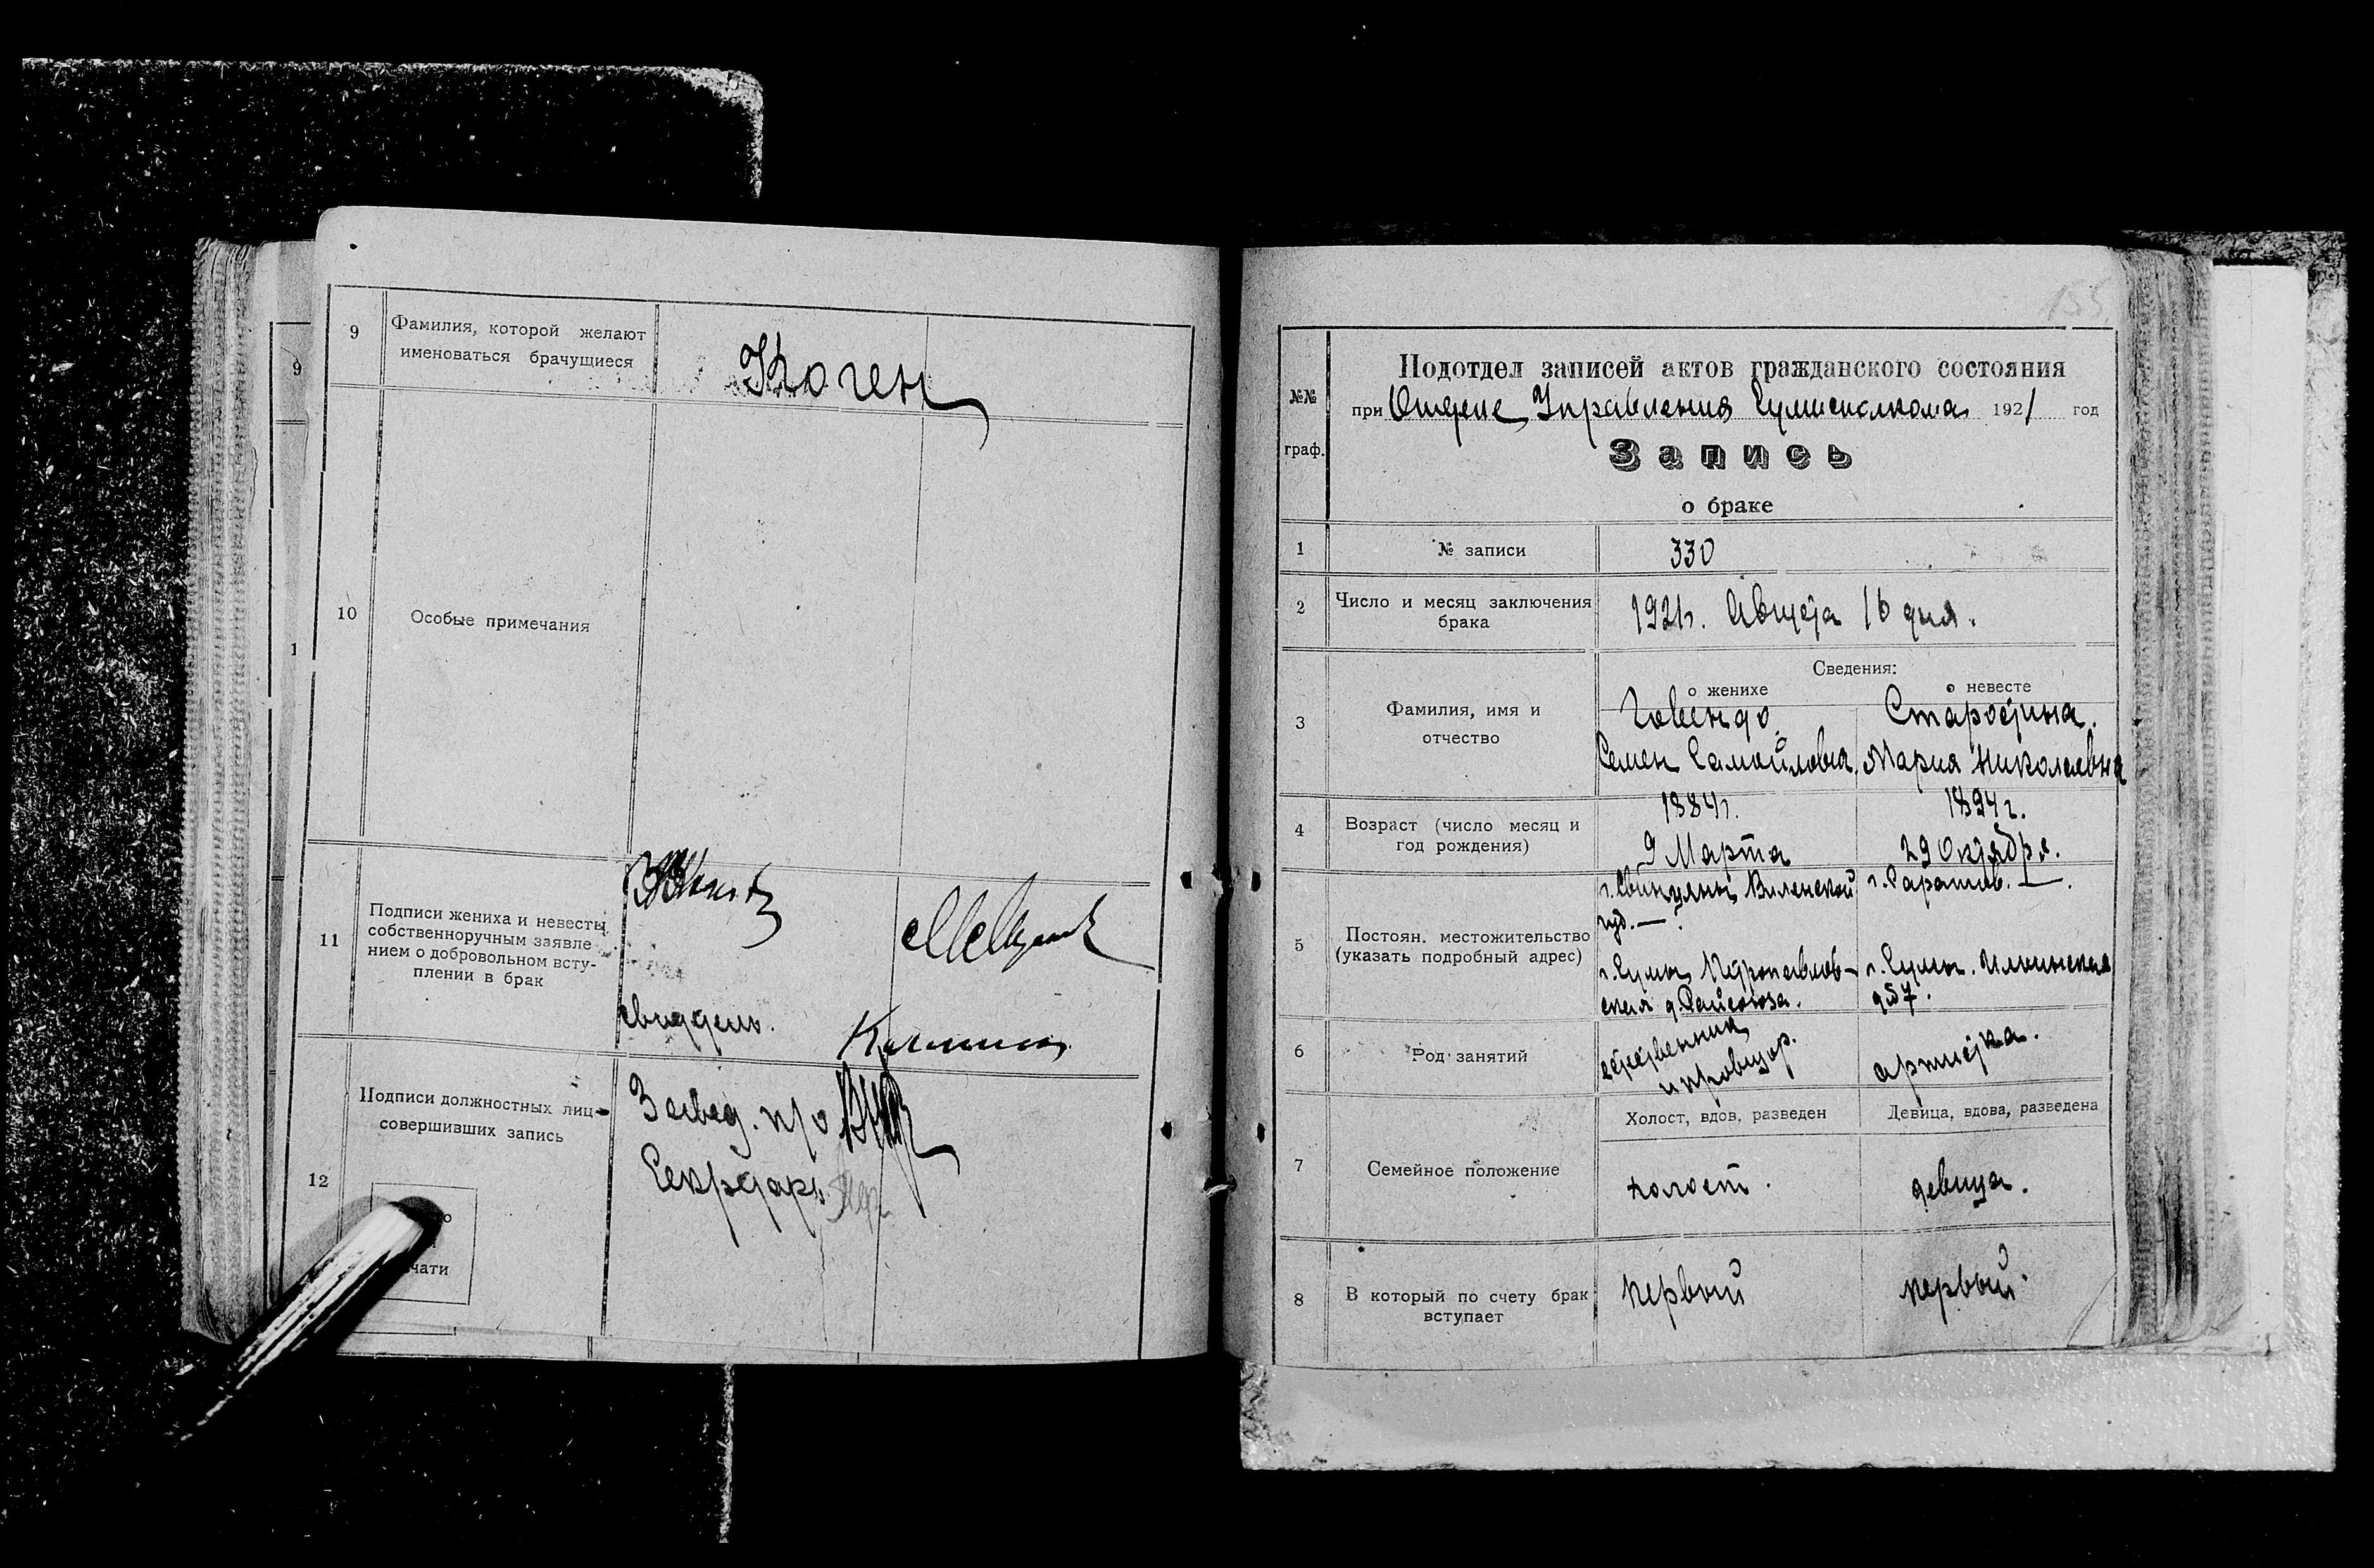 9
Фамилия, которой желают
именоваться брачущиеся
Коген
10
Особые примечания
11
Подписи жениха и невесты
собственноручным заявле
нием о добровольном всту-
плении в брак
12
Подписи должностных лиц
совершивших запись
Завед. п/о
Секретарь
чати
9
1
155
№№
граф.
Подотдел записей актов гражданского состояния
при Отделе Управления Сумисполкома 1921 год
Запись
о браке
1
№ записи
330
2
Число и месяц заключения
брака
1921г. Августа 16 дня.
Сведения:
3
Фамилия, имя и
отчество
о женихе
о невесте
Старостина.
Семен Самойлович
Мария Николаевна
4
Возраст (число месяц и
год рождения)
1884г.
9 Марта
1894г.
29 Октября.
5
Постоян. местожительство
(указать подробный адрес)
г. Свинцяны Виленской
губ. —.
г. Сумы, Петропавлов-
ская д. Райсоюза.
г. Саратов. —.
г. Сумы. Ильинская
д57.
6
Род занятий
и провизор.
артистка.
7
Семейное положение
Холост, вдов, разведен
Девица, вдова, разведена
холост.
девица.
8
В который по счету брак
вступает
первый
первый.